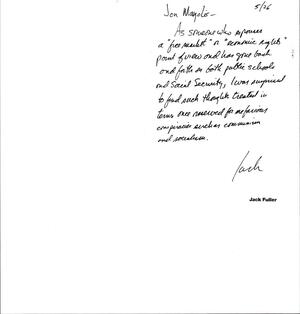 Jon Margolis - 5/26
As someone who espouses
a "free market" or "economic rights"
point of view and has gone back
and forth on both public schools
and Social Security, I was surprised
to find such thoughts treated in
terms once reserved for nefarious
conspiracies such as communism
and socialism.
Jack
Jack Fuller